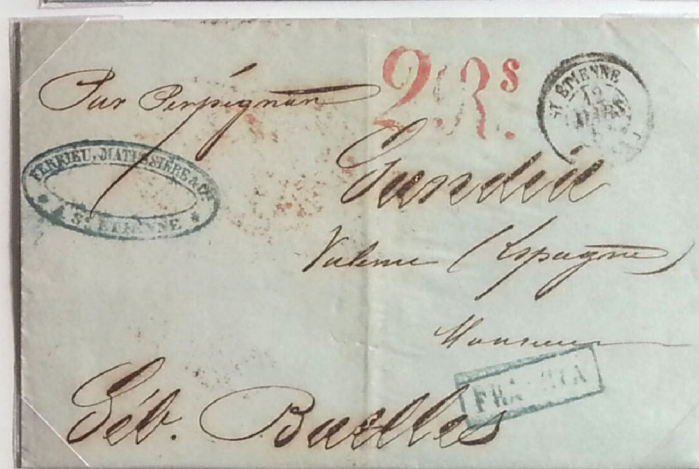 Par Perpignan
2 Rs.
ST ETIENNE
12
MARS
MATUSSIERE & Cie
A ST ETIENNE
Gandia
Valence (Espagne)
Monsieur
FRANCIA
Séb. Buelles